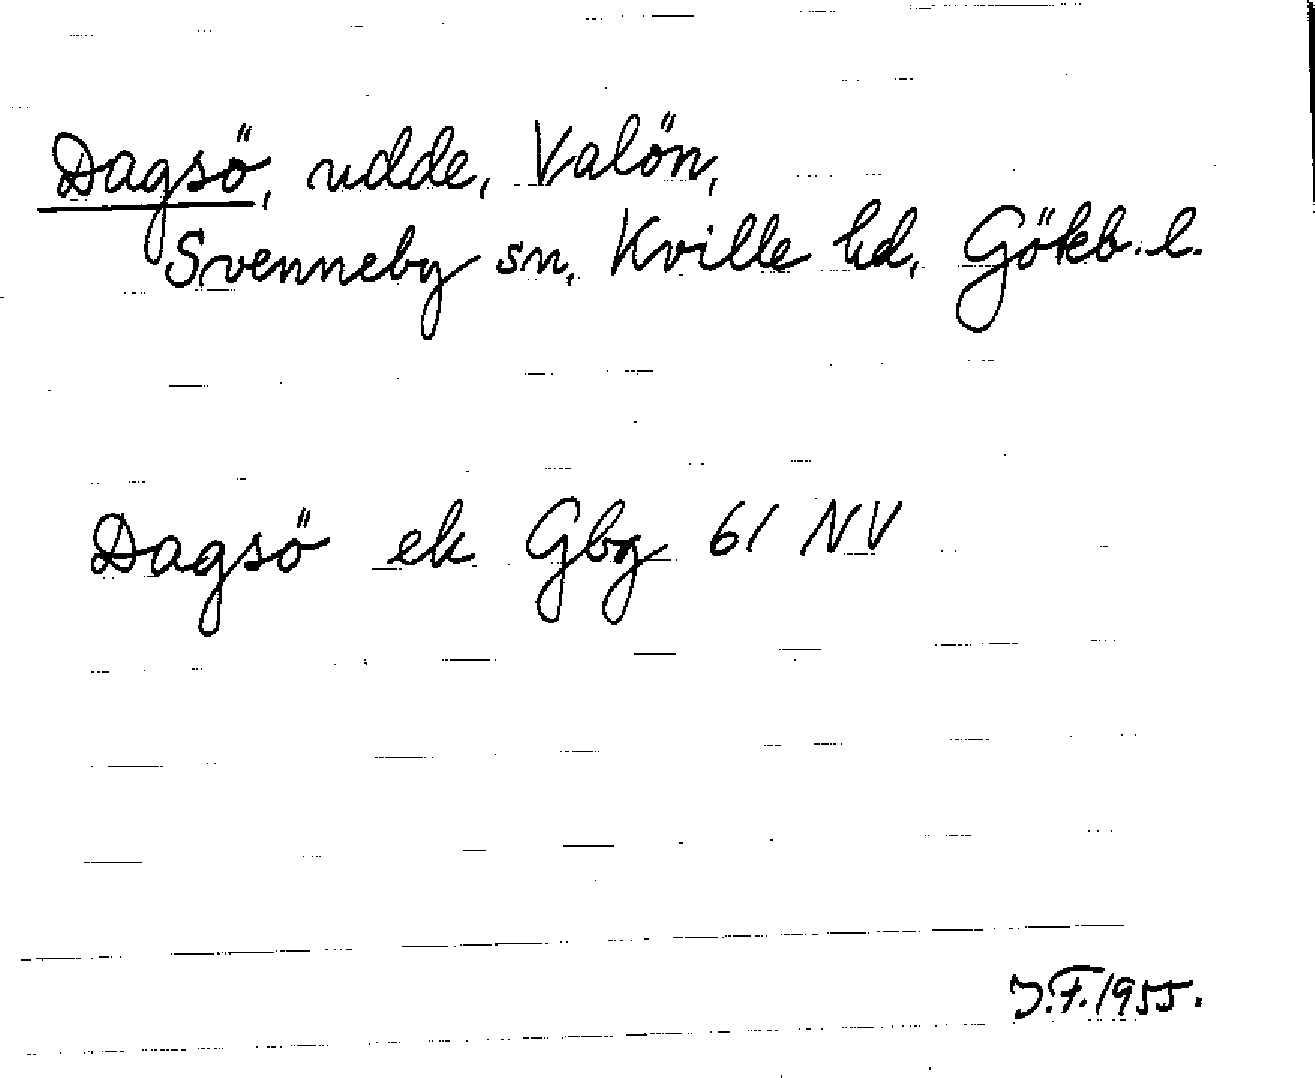 Dagsö, udde, Valön,
Svenneby sn, Kville hd, Gökb. l.
Dagsö ek Gbg 61 NV
J.F. 1955.